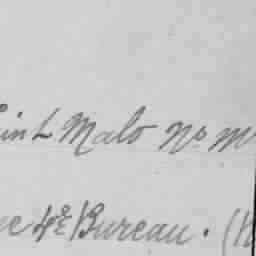 in L Malo No M
4e Bureau. (